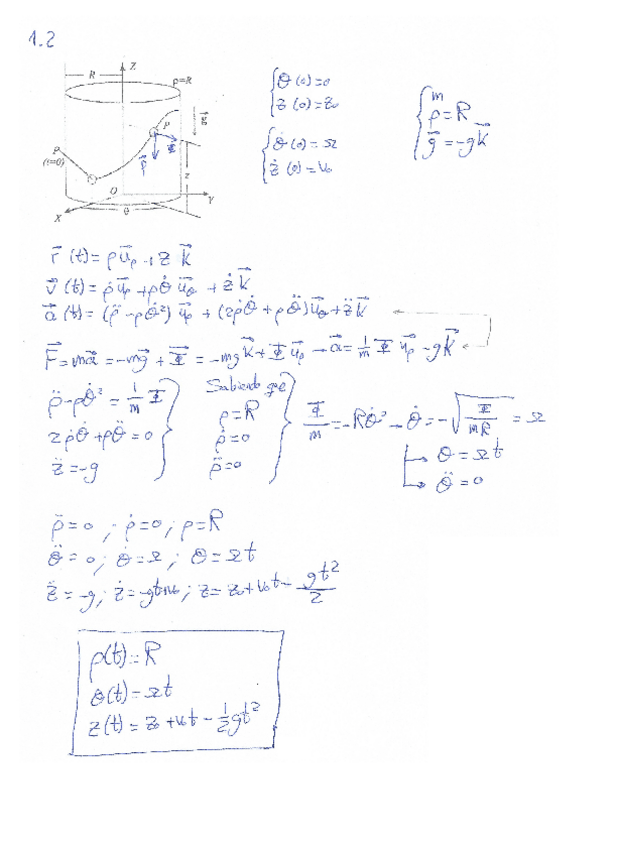 1.2
Z
R
ρ=R
P
P
(t=0)
g⃗
Φ⃗
z
O
Y
X
θ
{θ(0)=0
z(0)=z₀
{θ̇(0)=Ω
ż(0)=v₀
{m
ρ=R
g⃗=-gk⃗
r⃗(t)=ρu⃗ρ+zk⃗
v⃗(t)=ρ̇u⃗ρ+ρθ̇u⃗θ+żk⃗
a⃗(t)=(ρ̈-ρθ̇²)u⃗ρ+(2ρ̇θ̇+ρθ̈)u⃗θ+z̈k⃗
F⃗=ma⃗=-mg⃗+Φ⃗=-mgk⃗+Φu⃗ρ→a⃗=1/m Φu⃗ρ-gk⃗
ρ̈-ρθ̇²=1/m Φ
2ρ̇θ̇+ρθ̈=0
z̈=-g
Sabiendo que
ρ=R
ρ̇=0
ρ̈=0
Φ/m=-Rθ̇²→θ̇=-√(Φ/mR)=Ω
↳θ=Ωt
↳θ̈=0
ρ̈=0; ρ̇=0; ρ=R
θ̈=0; θ̇=Ω; θ=Ωt
z̈=-g; ż=-gt+v₀; z=z₀+v₀t-gt²/2
ρ(t)=R
θ(t)=Ωt
z(t)=z₀+v₀t-1/2gt²